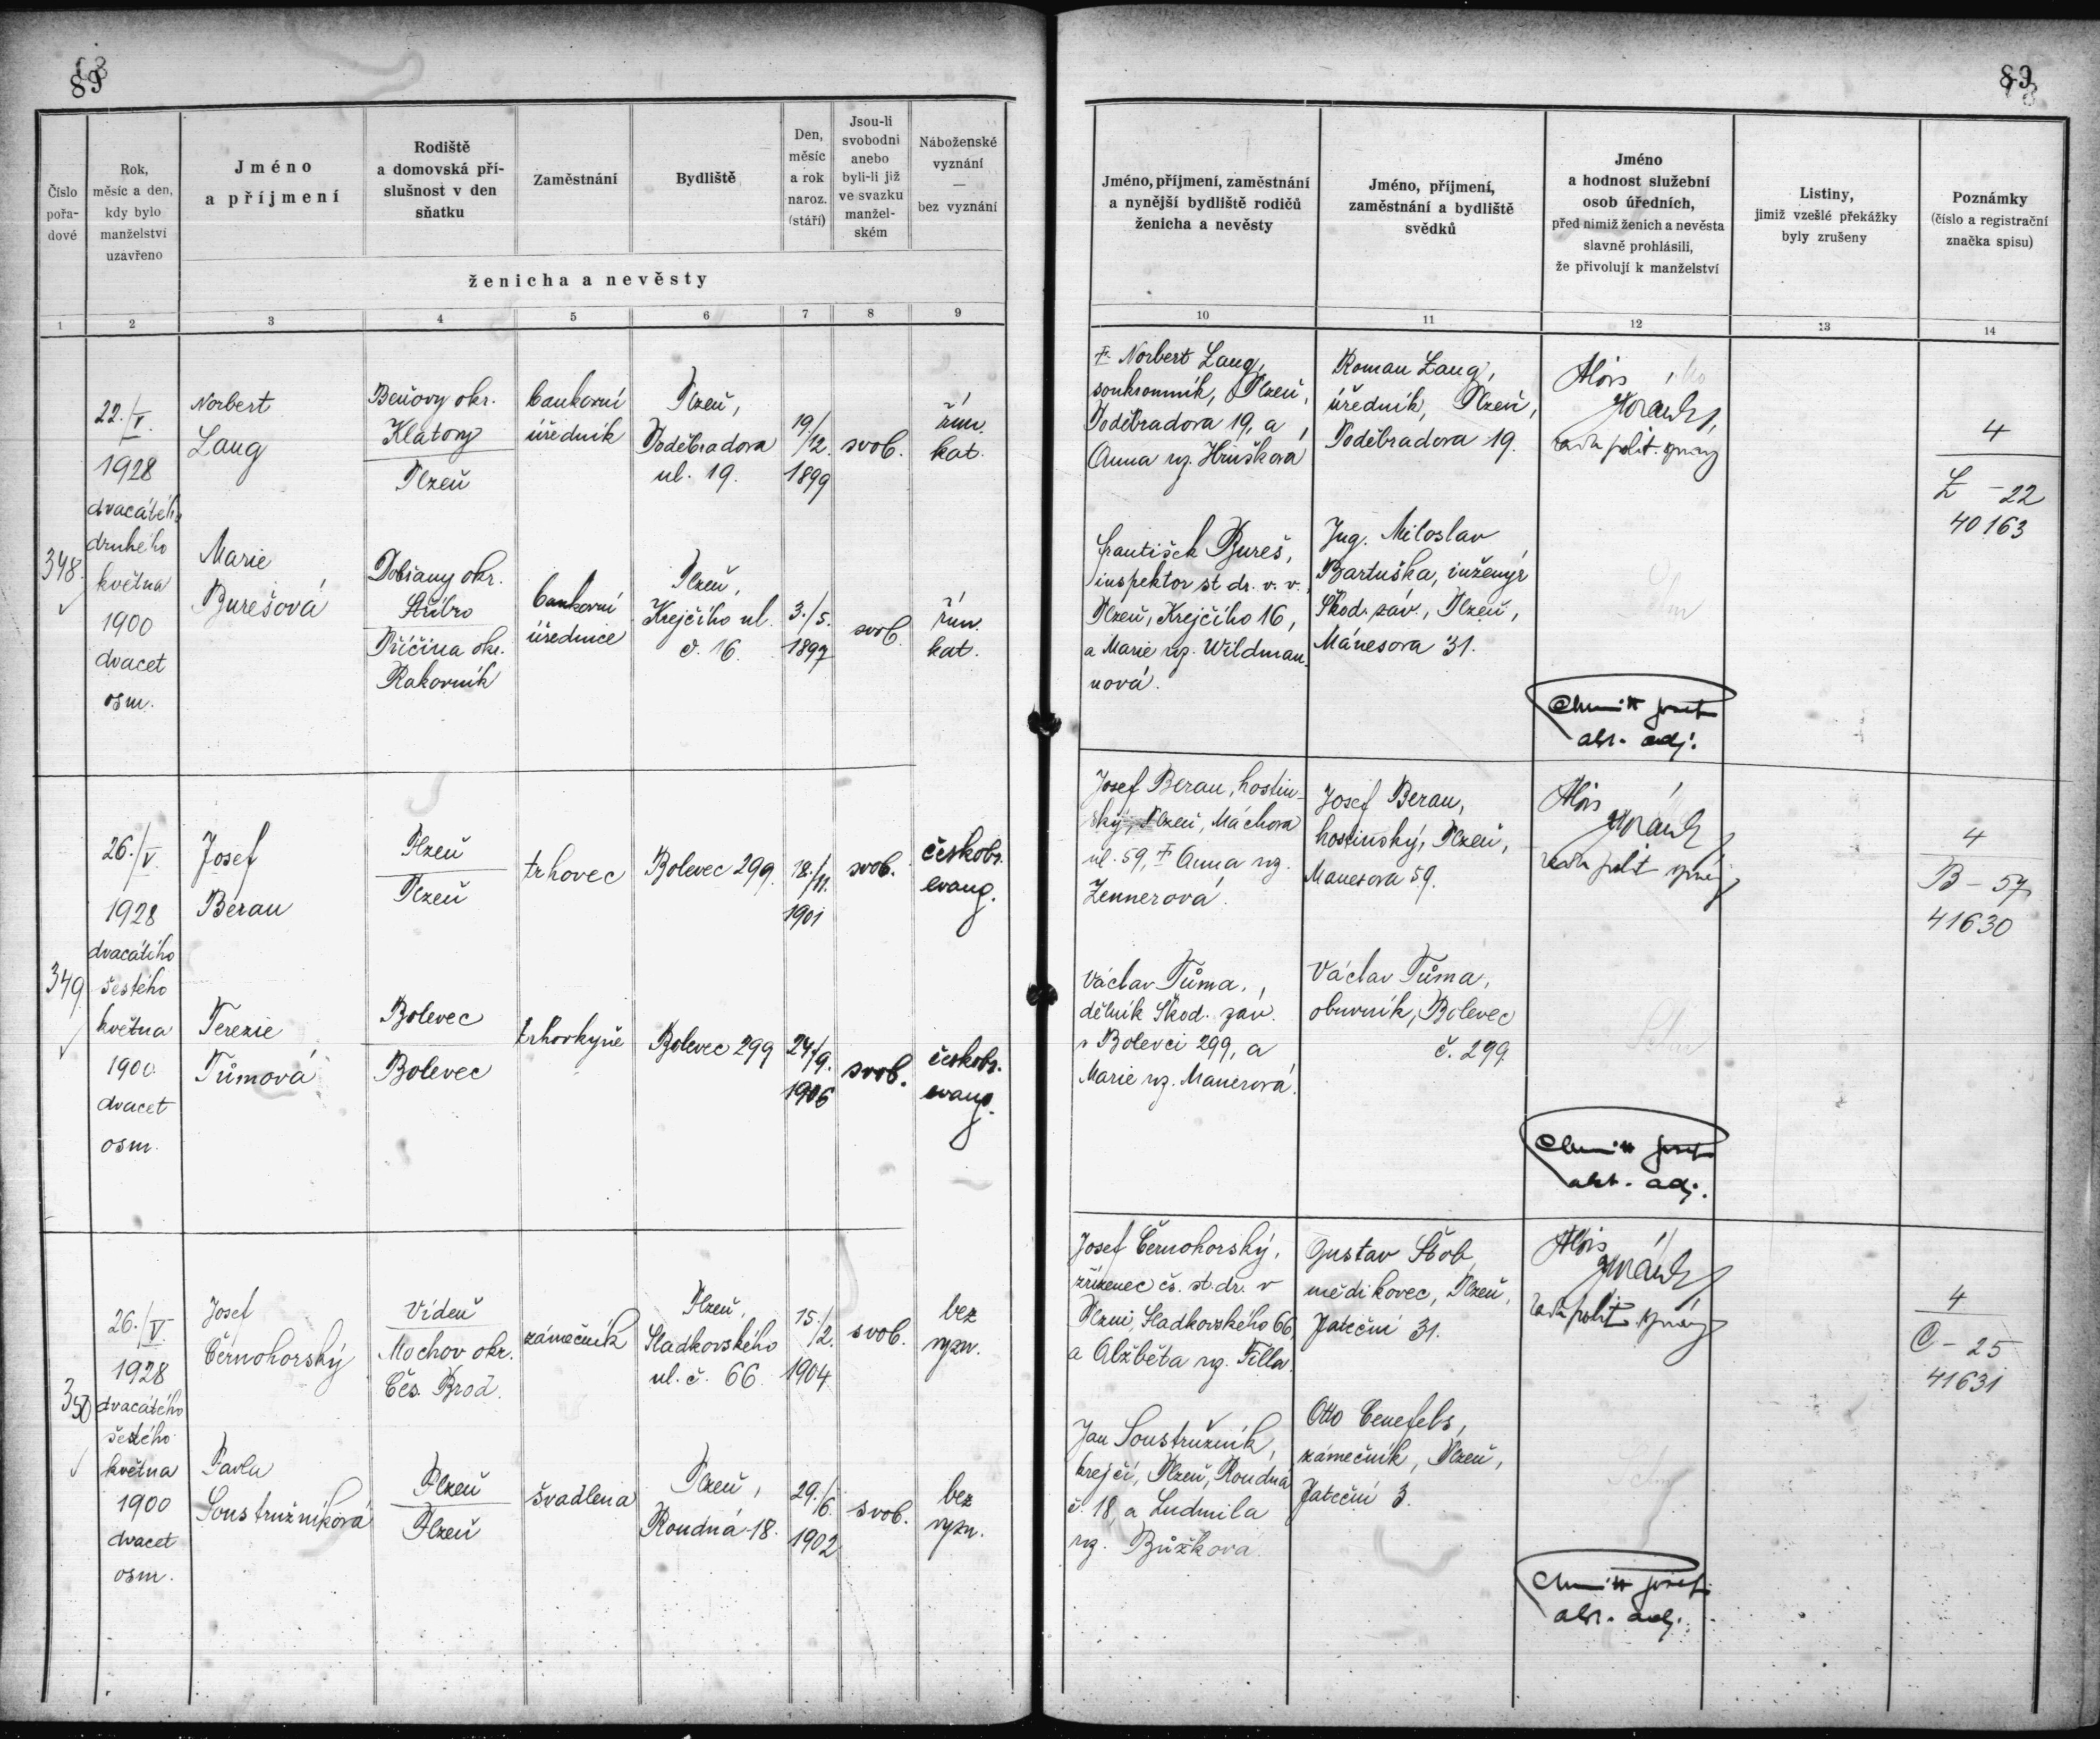 89
Číslo
pořa-
dové
Rok,
měsíc a den,
kdy bylo
manželství
uzavřeno
Jméno
a příjmení
Rodiště
a domovská pří-
slušnost v den
sňatku
Zaměstnání
Bydliště
Den,
měsíc
a rok
naroz.
(stáří)
Jsou-li
svobodni
anebo
byli-li již
ve svazku
manžel-
ském
Náboženské
vyznání
—
bez vyznání
ženicha a nevěsty
1 2 3 4 5 6 7 8 9
348.
22./V.
1928
dvacátého
druhého
května
1900
dvacet
osm.
Norbert
Lang
Beňovy okr.
Klatovy
Plzeň
bankovní
úředník
Plzeň,
Poděbradova
ul. 19.
19./12.
1899
svob.
řím.
kat.
Marie
Burešová
Dobřany okr.
Stříbro
Příčina okr.
Rakovník
bankovní
úřednice
Plzeň,
Krejčího ul.
č. 16.
3./5.
1897
svob.
řím.
kat.
349
26./V.
1928
dvacátého
šestého
května
1900
dvacet
osm.
Josef
Beran
Plzeň
Plzeň
trhovec
Bolevec 299.
18./11.
1901
svob.
českobr.
evang.
Terezie
Tůmová
Bolevec
Bolevec
trhovkyně
Bolevec 299
24./9.
1906
svob.
českobr.
evang.
350
26./V.
1928
dvacátého
šestého
května
1900
dvacet
osm.
Josef
Černohorský
Vídeň
Mochov okr.
Čes. Brod.
zámečník
Plzeň,
Sladkovského
ul. č. 66.
15./2.
1904
svob.
bez
vyzn.
Pavla
Soustružníková
Plzeň
Plzeň
švadlena
Plzeň,
Roudná 18.
29./6.
1902
svob.
bez
vyzn.
89
Jméno, příjmení, zaměstnání
a nynější bydliště rodičů
ženicha a nevěsty
Jméno, příjmení,
zaměstnání a bydliště
svědků
Jméno
a hodnost služební
osob úředních,
před nimiž ženich a nevěsta
slavně prohlásili,
že přivolují k manželství
Listiny,
jimiž vzešlé překážky
byly zrušeny
Poznámky
(číslo a registrační
značka spisu)
10 11 12 13 14
† Norbert Lang,
soukromník, Plzeň,
Poděbradova 19, a
Anna roz. Hrušková
Roman Lang,
úředník, Plzeň,
Poděbradova 19.
Alois
rada polit. správy
4
L - 22
40163
František Bureš,
inspektor st. dr. v. v.
Plzeň, Krejčího 16,
a Marie roz. Wildman-
nová.
Ing. Miloslav
Bartuška, inženýr
Škod. záv., Plzeň,
Mánesova 31.
Josef
adj.
Josef Beran, hostin-
ský, Plzeň, Máchova
ul. 59, † Anna roz.
Zennerová.
Josef Beran,
hostinský, Plzeň,
Manesova 59.
Alois
rada polit. správy
4
B - 57
41630
Václav Tůma,
dělník Škod. záv.
v Bolevci 299, a
Marie roz. Mauerová.
Václav Tůma,
obuvník, Bolevec
č. 299
Josef
adj.
Josef Černohorský,
zřízenec čs. st. dr. v
Plzni, Sladkovského 66,
a Alžběta roz. Filla.
Gustav Štob,
mědikovec, Plzeň,
Jateční 31.
Alois
rada polit. správy
4
C - 25
41631
Jan Soustružník,
krejčí, Plzeň, Roudná
č. 18, a Ludmila
roz. Bůžkova.
Otto
zámečník, Plzeň,
Jateční 3.
Josef
adj.